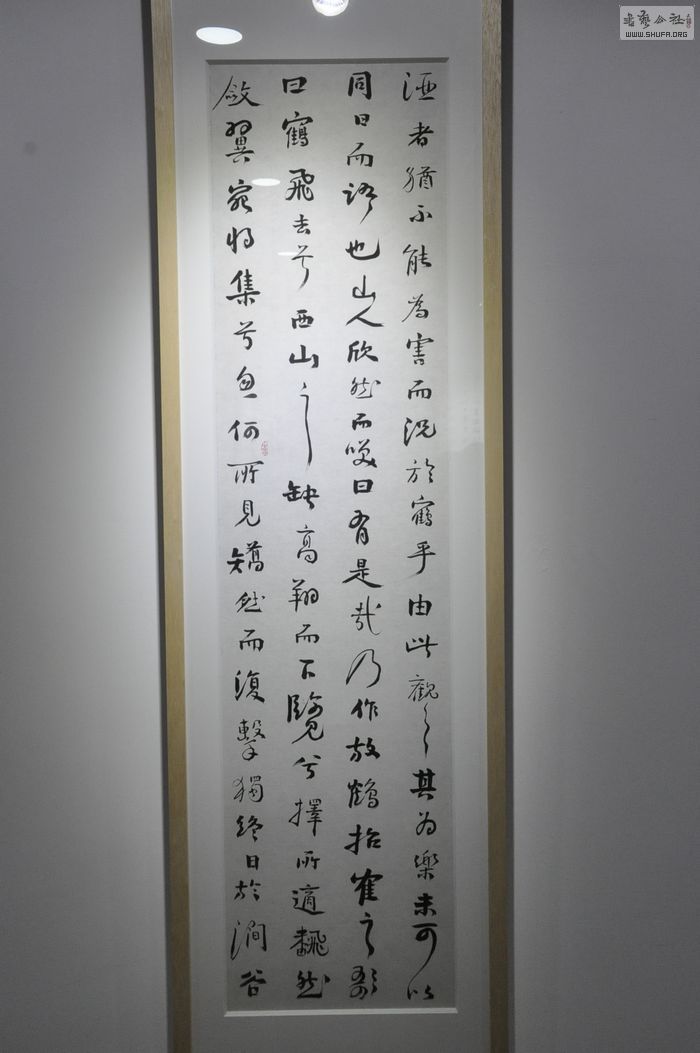 酒者猶不能為害而況於鶴乎由此觀之其为樂未可以
同日而語也山人欣然而咲曰有是哉乃作放鶴招鶴之歌
曰鶴飛去兮西山之缺高翔而下覽兮擇所適飜然
斂翼宛将集兮忽何所見矯然而復擊獨終日於澗谷
書藝公社
WWW.SHUFA.ORG